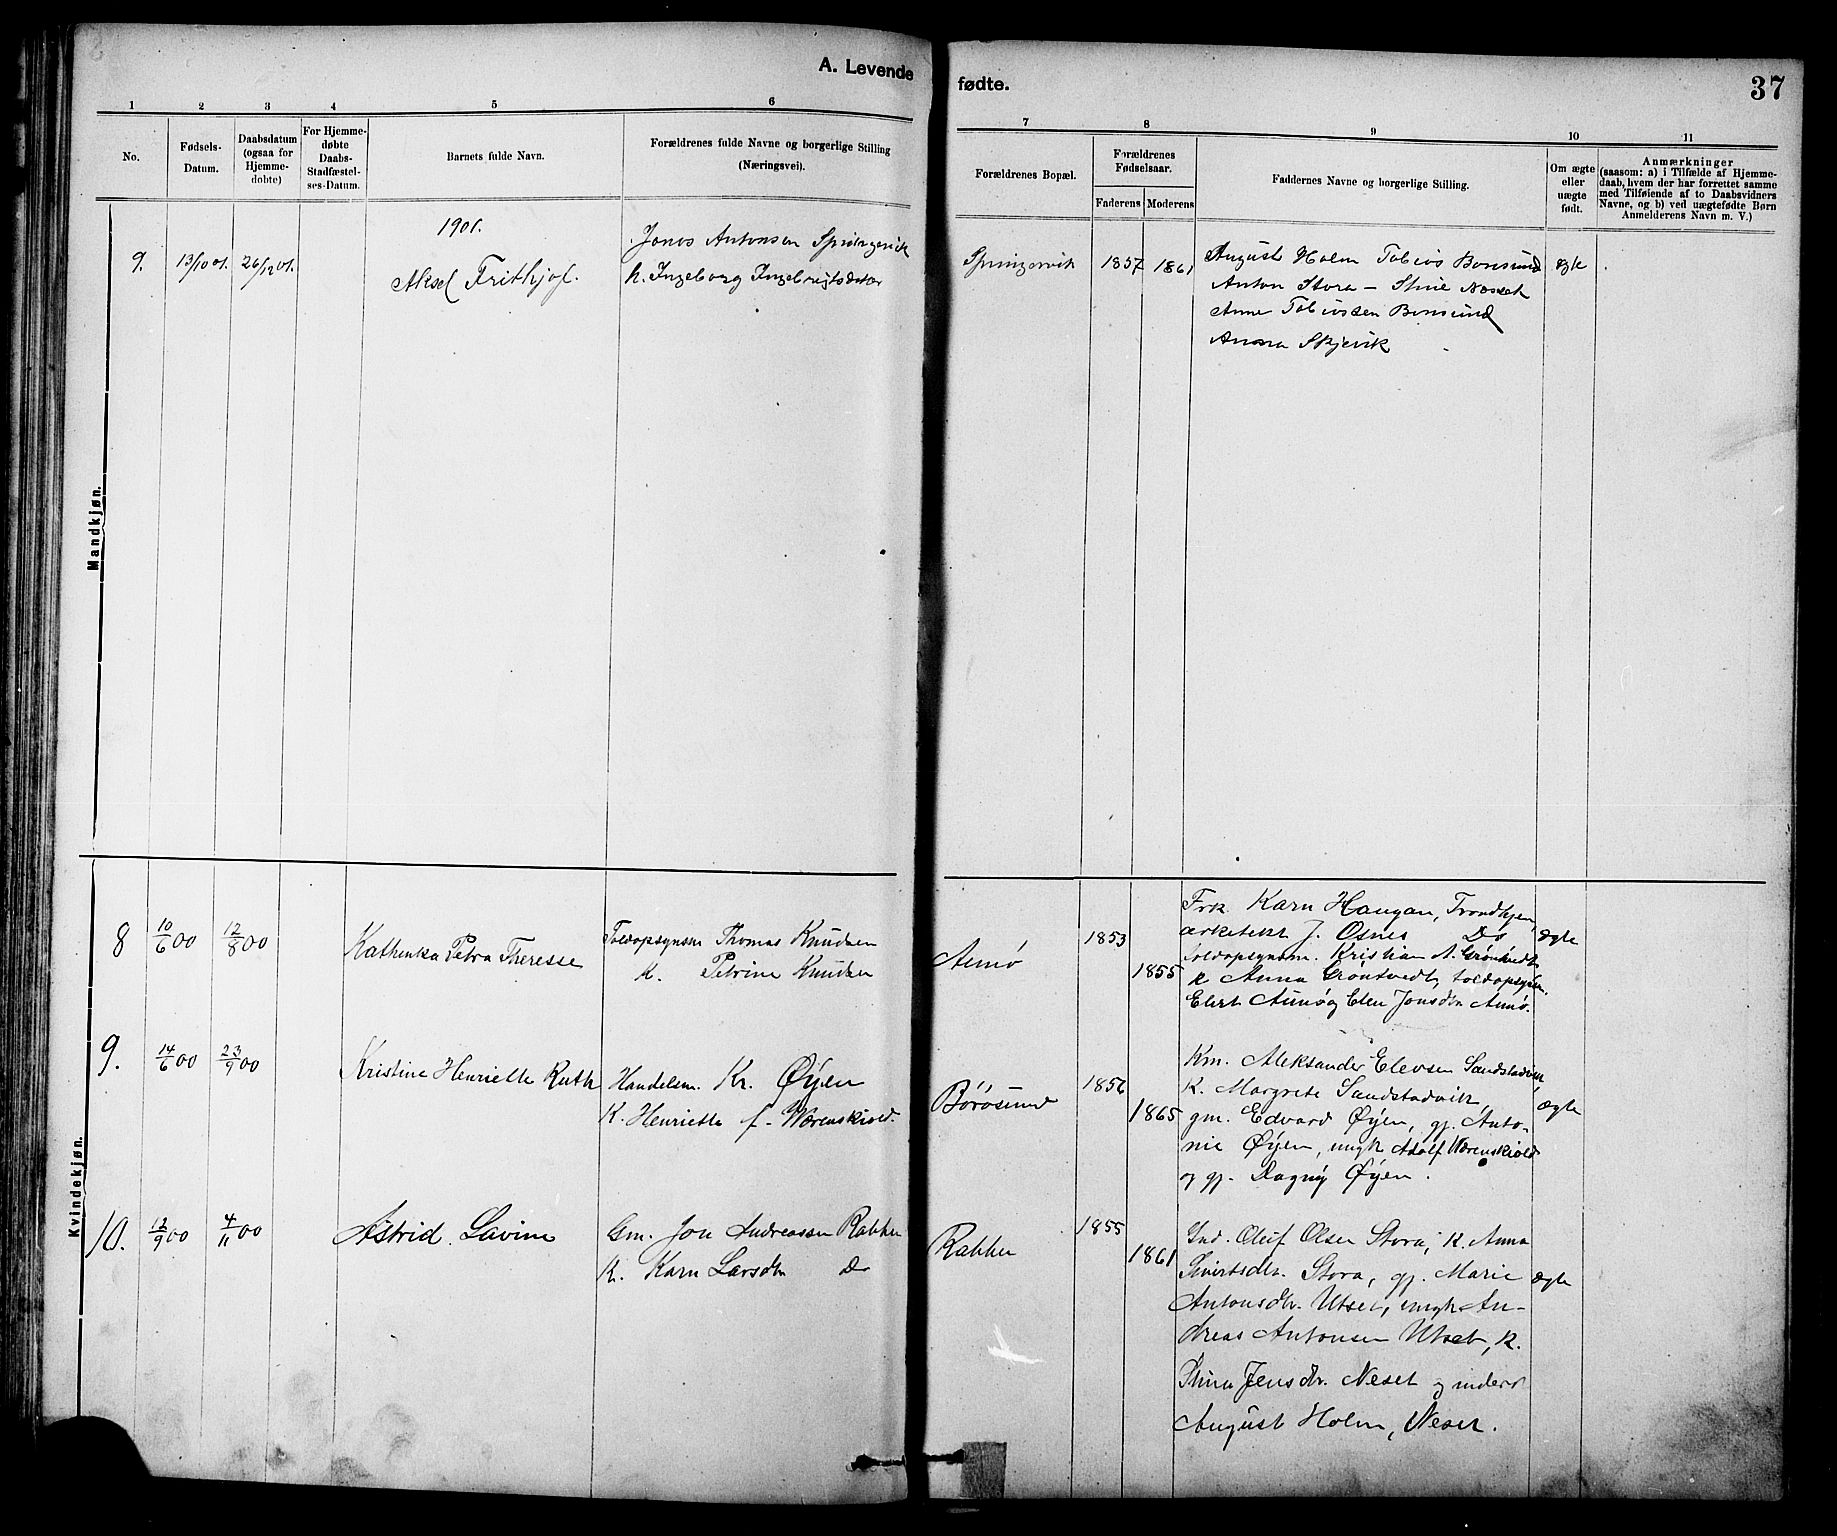 A. Levende
fødte.
37
1 2 3 4 5 6
7 8 9 10 11
No.
Fødsels-
Datum.
Daabsdatum
(ogsaa for
Hjemme-
døbte)
For Hjemme-
døbte
Daabs-
Stadfæstel-
ses-Datum.
Barnets fulde Navn.
Forældrenes fulde Navne og borgerlige Stilling
(Næringsvei).
Forældrenes Bopæl.
Forældrenes
Fødselsaar.
Faderens Moderens
Faddernes Navne og borgerlige Stilling.
Om ægte
eller
uægte
født.
Anmærkninger
(saasom: a) i Tilfælde af Hjemme-
daab, hvem der har forrettet samme
med Tilføiende af to Daabsvidners
Navne, og b) ved uægtefødte Børn
Anmelderens Navn m. V.)
Mandkjøn.
1901.
9. 13/10 01. 26/12 01.
Aksel Frithjof.
Jonas Antonsen Springervik
k. Ingeborg Ingebrigtsdatter
Springervik 1857 1861
August Holm Tobias Borøsund
Anton Stora – Stine Nesset
Anne Tobiassen Borøsund
Anna Skjevik
ægte
Kvindekjøn.
8 10/6 00 12/8 00
Kathenka Petra Theresse
Toldopsynsm Thomas Knudsen
k. Petrine Knudsen
Aunø 1853 1855
Frk. Karn Haugan, Trondhjem,
arkitekt J. Osnes Do
toldopsynsm. Kristian A. Grøntvedt
k Anna Grøntvedt, toldopsynsm.
Elert Aunø og Elen Jonsdtr Aunø.
ægte
9. 14/6 00 23/9 00
Kristine Henriette Ruth
Handelsm. Kr. Øyen
K. Henriette f. Wærenskiold.
Børøsund 1856 1865
Km. Aleksander Elevsen Sandstadvik
K. Margrete Sandstadvik,
gm. Edvard Øyen, gj. Anto-
nie Øyen, ungk Adolf Wærenskiold
og gj. Dagny Øyen.
ægte
10. 12/9 00 4/11 00
Astrid Lavine
Gm. Jon Andreassen Rabben
K. Karn Larsdtr Do
Rabben 1855 1861
Ind. Oluf Olsen Stora, K. Anna
Sivertsdtr. Stora, gj. Marie
Antonsdtr. Utset, ungk An-
dreas Antonsen Utset, k.
Stina Jensdtr. Neset og inderst
August Holm, Neset.
ægte